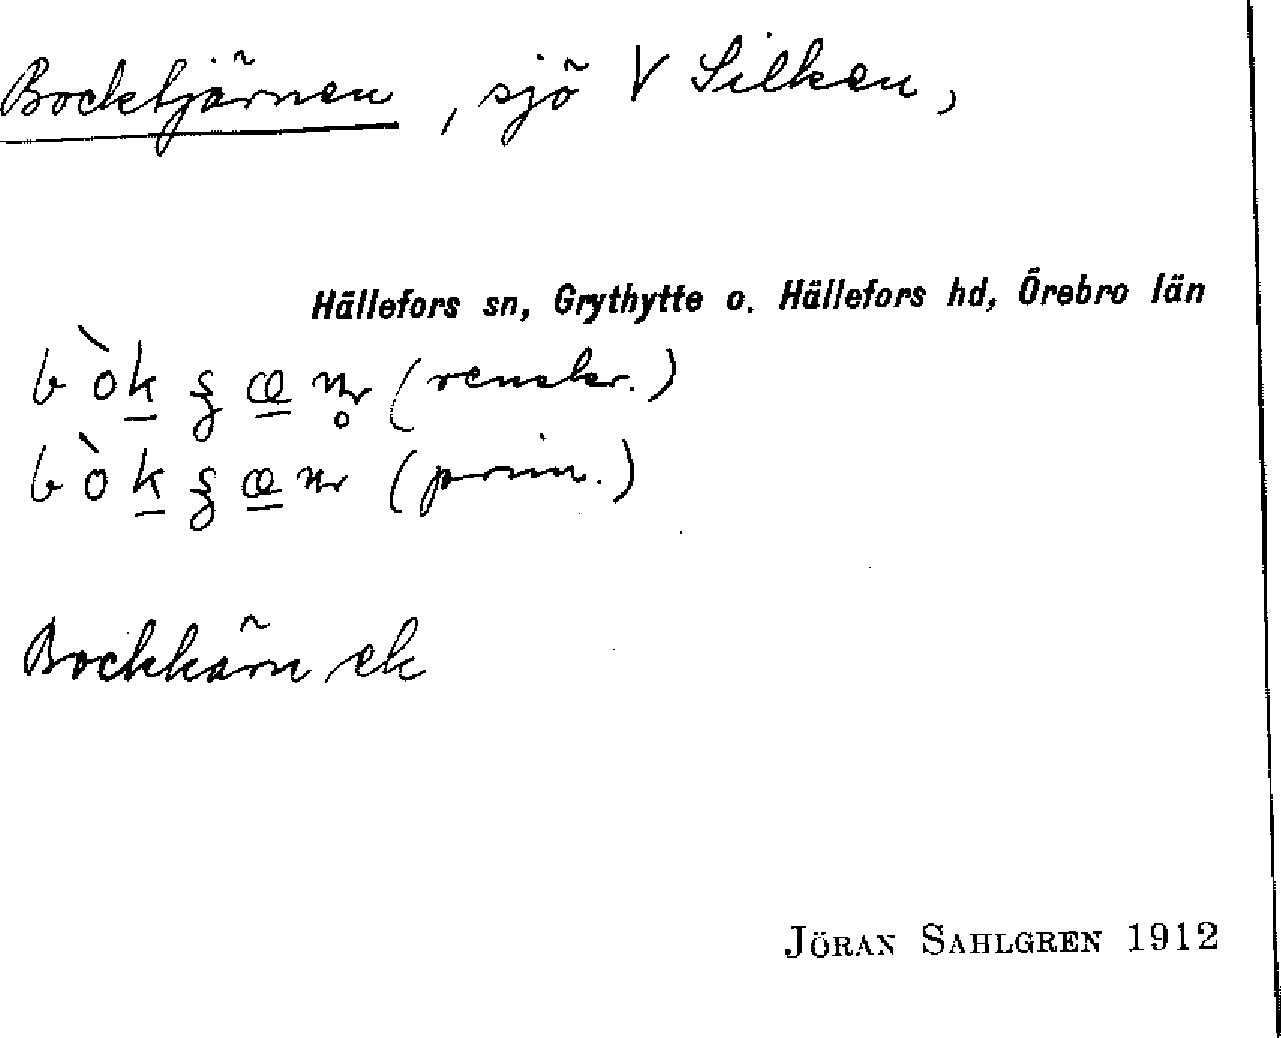 Bocktjärnen, sjö V Silken,
Hällefors sn, Grythytte o. Hällefors hd, Örebro län
bòk̲ ʂ æ̲ n̥ (renskr.)
bòk̲ ʂ æ̲ n (prim.)
Bockkärn ek
JÖRAN SAHLGREN 1912